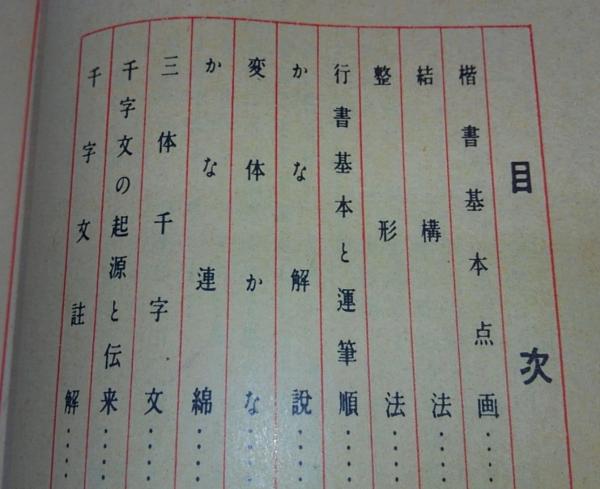 目次
楷書基本点画……
結構法……
整形法……
行書基本と運筆順……
かな解説……
変体かな……
かな連綿……
三体千字文……
千字文の起源と伝来……
千字文註解……